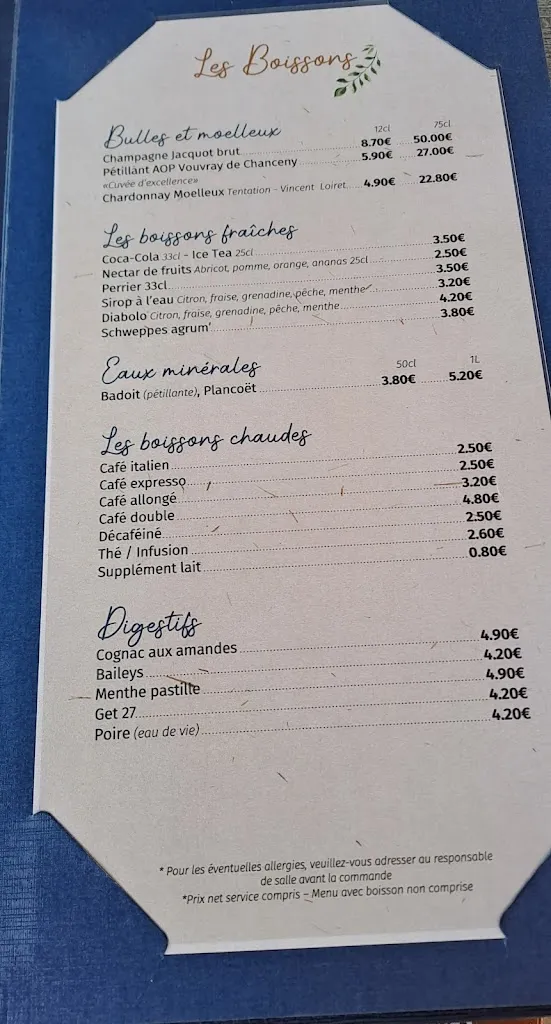 Les Boissons
Bulles et moelleux 12cl 75cl
Champagne Jacquot brut 8.70€ 50.00€
Pétillant AOP Vouvray de Chanceny 5.90€ 27.00€
«Cuvée d'excellence»
Chardonnay Moelleux Tentation - Vincent Loiret 4.90€ 22.80€
Les boissons fraîches
Coca-Cola 33cl - Ice Tea 25cl 3.50€
Nectar de fruits Abricot, pomme, orange, ananas 25cl 2.50€
Perrier 33cl 3.50€
Sirop à l'eau Citron, fraise, grenadine, pêche, menthe 3.20€
Diabolo Citron, fraise, grenadine, pêche, menthe 4.20€
Schweppes agrum' 3.80€
Eaux minérales 50cl 1L
Badoit (pétillante), Plancoët 3.80€ 5.20€
Les boissons chaudes
Café italien 2.50€
Café expresso 2.50€
Café allongé 3.20€
Café double 4.80€
Décaféiné 2.50€
Thé / Infusion 2.60€
Supplément lait 0.80€
Digestifs
Cognac aux amandes 4.90€
Baileys 4.20€
Menthe pastille 4.90€
Get 27 4.20€
Poire (eau de vie) 4.20€
* Pour les éventuelles allergies, veuillez-vous adresser au responsable
de salle avant la commande
*Prix net service compris – Menu avec boisson non comprise